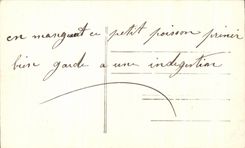 en mangeant ce petit poisson
bien garde a une indigestion